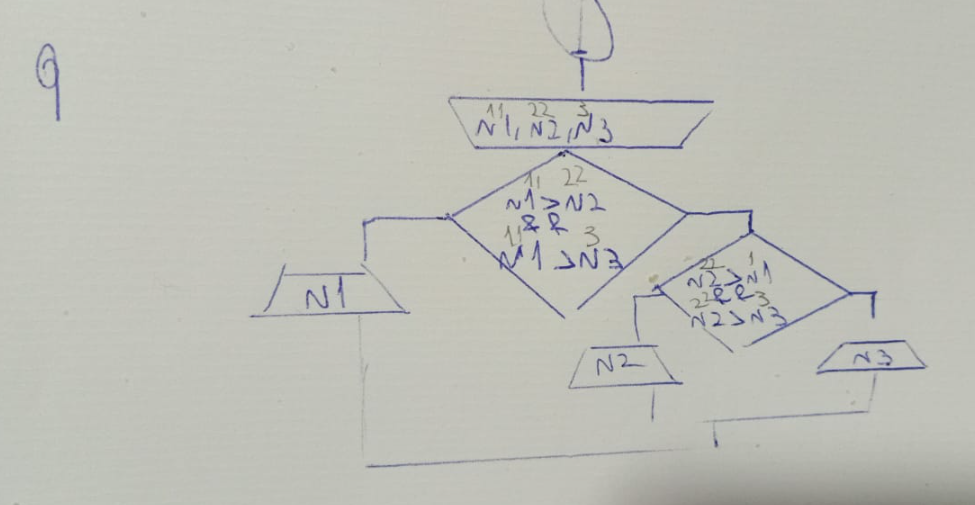 9
11 22 3
N1, N2, N3
11 22
N1 > N2
&&
11 3
N1 > N3
N1
22 1
N2 > N1
22 && 3
N2 > N3
N2
N3